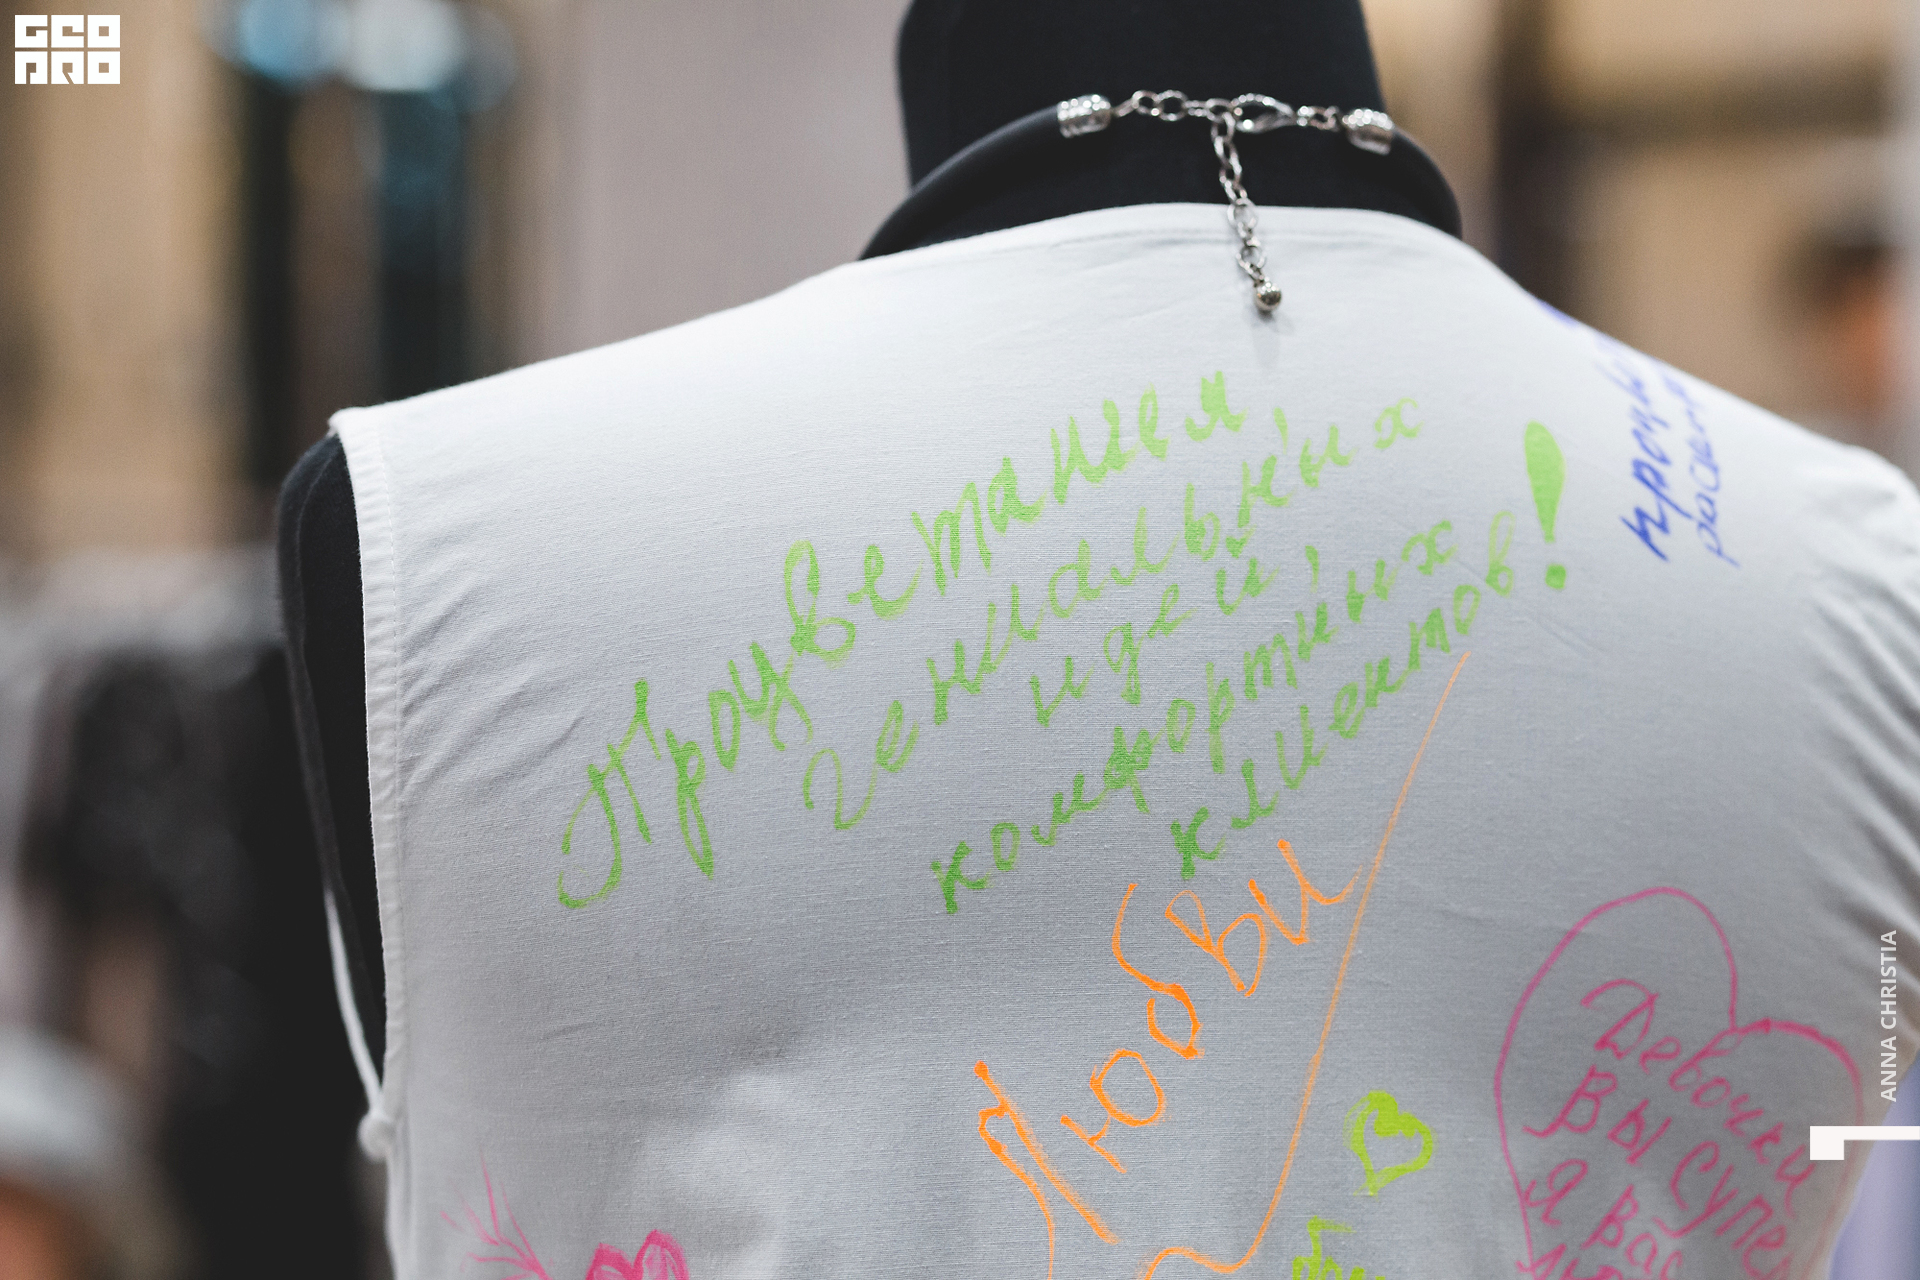 GEO
PRO
Процветания
гениальных
идей
комфортных
клиентов!
Любви
Девочки
Вы супер
Я вас
ANNA CHRISTIA